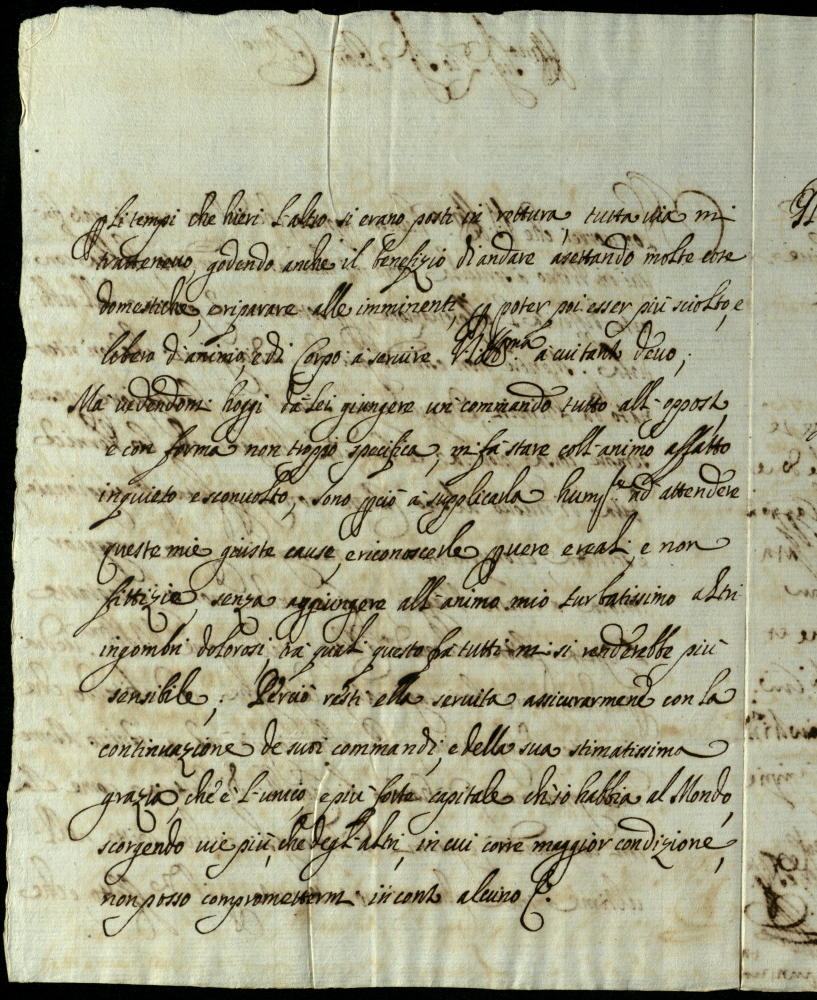 p li tempi che hieri l'altro si erano posti in rottura, tutta via mi
trattenevo, godendo anche il benefizio di andare asettando molte cose
domestiche, e riparare alle imminenti, p poter poi esser più sciolto, e
libero d'animo, e di Corpo à servire V.S. Ill.ma à cui tanto devo;
Mà vedendomi hoggi da Lei giungere un commando tutto all'opposto,
e con forma non troppo specifica, mi fà stare coll'animo affatto
inquieto e sconvolto, sono pciò à supplicarla hum.te ad attendere
queste mie giuste cause, e riconoscerle p vere e reali, e non
fittizie, senza aggiungere all'animo mio turbatissimo altri
ingombri dolorosi, trà quali questo frà tutti mi si renderebbe più
sensibile; Perciò resti ella servita assicurarmene con la
continuazione de suoi commandi, e della sua stimatissima
grazia, che è l'unico, e più forte capitale ch'io habbia al Mondo,
scorgendo vie più, che degl'altri, in cui corre maggior condizione,
non posso compromettermi in conto alcuno